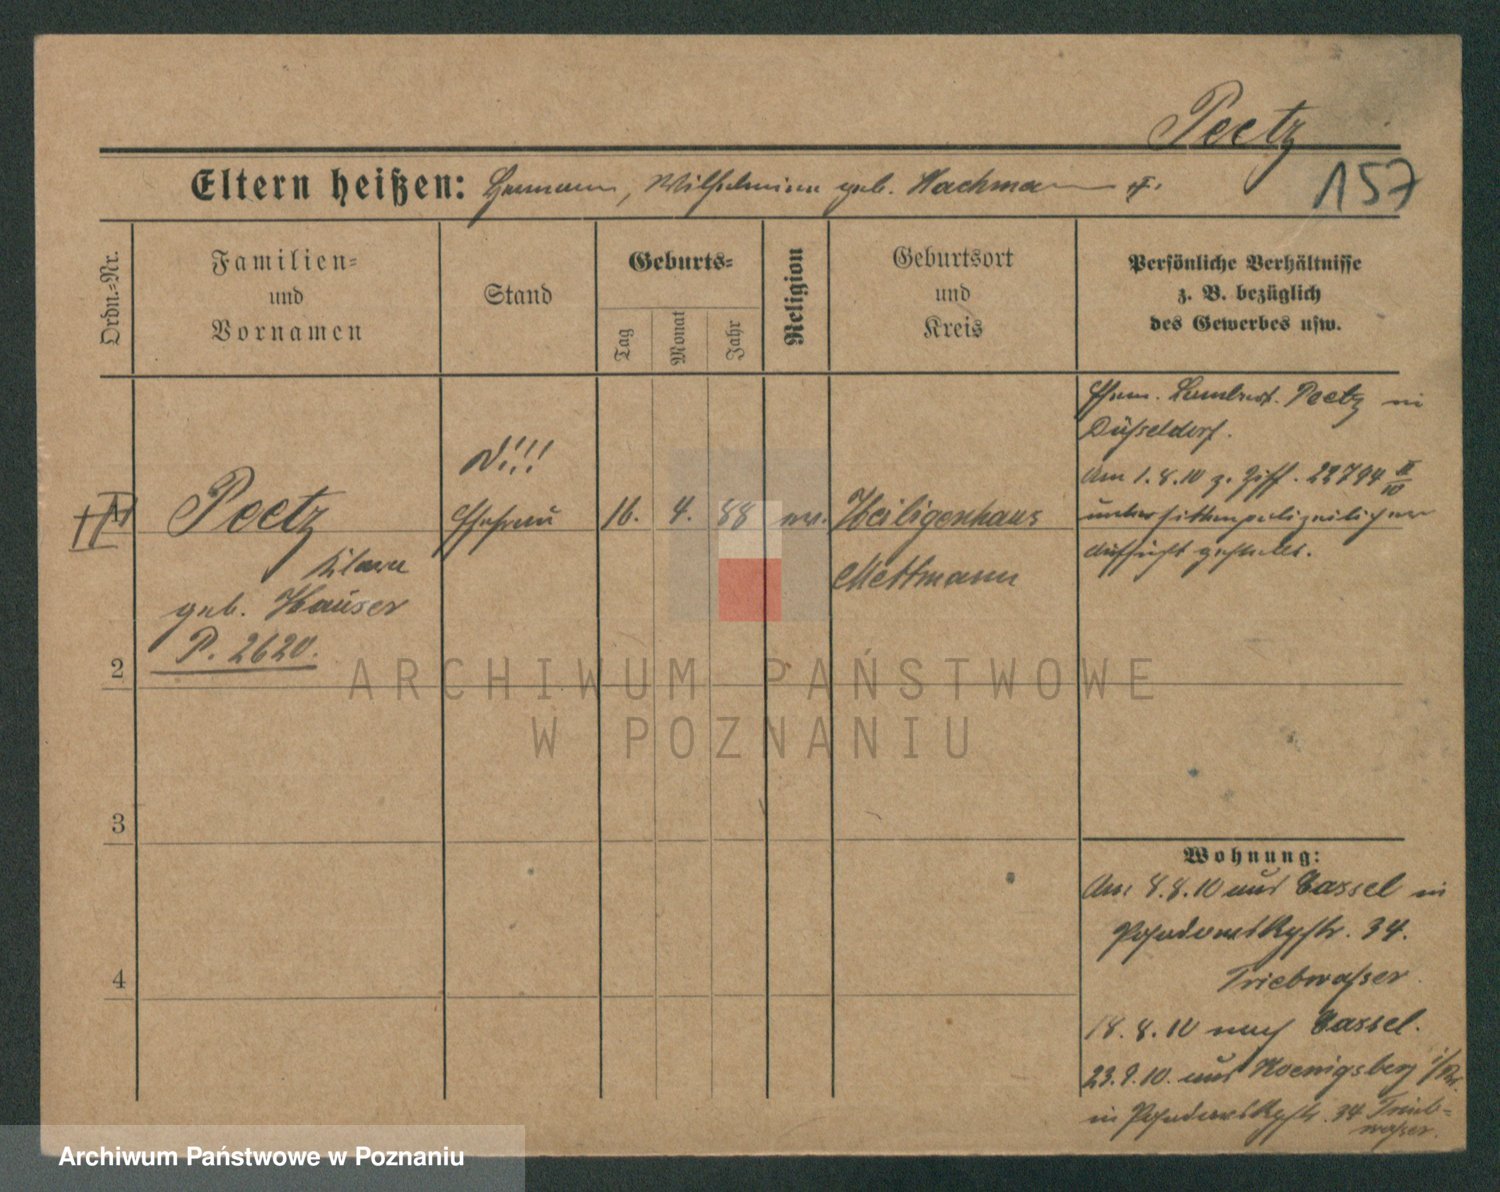 Peetz
157
Eltern heißen: Hermann, Wilhelmine geb. Hachmann
Ordn.=Nr.
Familien=
und
Vornamen
Stand
Geburts=
Tag
Monat
Jahr
Religion
Geburtsort
und
Kreis
Persönliche Verhältnisse
z. B. bezüglich
des Gewerbes usw.
1
Peetz
Klara
geb. Hauser
P. 2620.
N!!!
Ehefrau
16.
4.
88
ev.
Heiligenhaus
Mettmann
Ehem. Lambert. Peetz in
Düsseldorf.
Am 1.8.10 z. Ziff. 22794 II/10
unter sittenpolizeilicher
Aufsicht gestellt.
2
3
4
Wohnung:
Am 8.8.10 aus Cassel in
34.
Triebwasser.
18.8.10 nach Cassel.
23.9.10. aus Koenigsberg i/Pr.
in 34 Trieb-
wasser.
ARCHIWUM PAŃSTWOWE
W POZNANIU
Archiwum Państwowe w Poznaniu